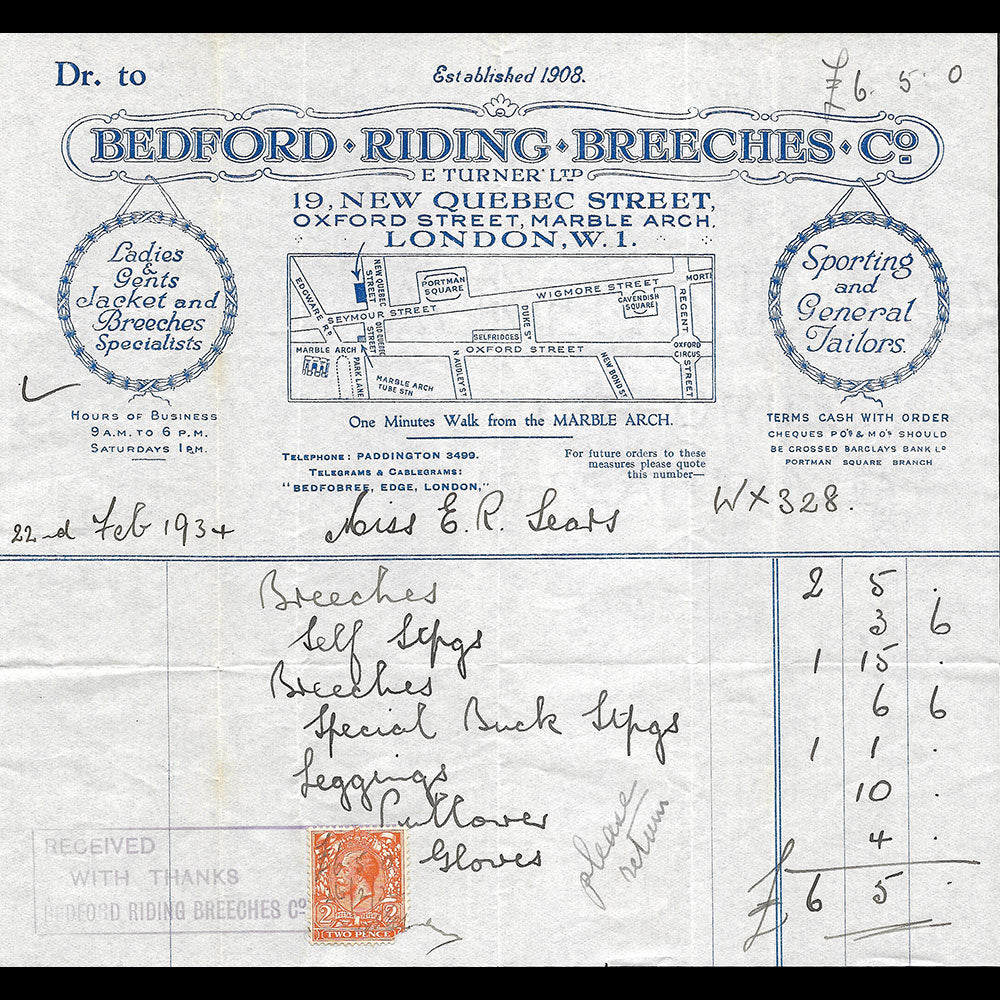 Dr. to
Established 1908.
£6. 5. 0
BEDFORD · RIDING · BREECHES · Cº
E TURNER LTD
19, NEW QUEBEC STREET,
OXFORD STREET, MARBLE ARCH.
LONDON, W.1.
Ladies
&
Gents
Jacket and
Breeches
Specialists
Sporting
and
General
Tailors.
EDGWARE RD
NEW QUEBEC STREET
PORTMAN SQUARE
WIGMORE STREET
CAVENDISH SQUARE
MORTI
REGENT STREET
SEYMOUR STREET
OLD QUEBEC STREET
DUKE ST
SELFRIDGES
MARBLE ARCH
OXFORD STREET
OXFORD CIRCUS
PARK LANE
MARBLE ARCH TUBE STN
N AUDLEY ST
NEW BOND ST
One Minutes Walk from the MARBLE ARCH.
HOURS OF BUSINESS
9 A.M. TO 6 P.M.
SATURDAYS 1 P.M.
TERMS CASH WITH ORDER
CHEQUES POs & MOs SHOULD
BE CROSSED BARCLAYS BANK LD
PORTMAN SQUARE BRANCH
TELEPHONE: PADDINGTON 3499.
TELEGRAMS & CABLEGRAMS:
"BEDFOBREE, EDGE, LONDON,"
For future orders to these
measures please quote
this number—
22nd Feb 1934
Miss E. R. Sears
WX328.
Breeches 2 5 .
Self Stpgs 3 6
Breeches 1 15 .
Special Buck Stpgs 6 6
Leggings 1 1 .
Pullover 10 .
Gloves 4 .
£ 6 5 .
please
return
RECEIVED
WITH THANKS
BEDFORD RIDING BREECHES Cº
2 2
TWO PENCE